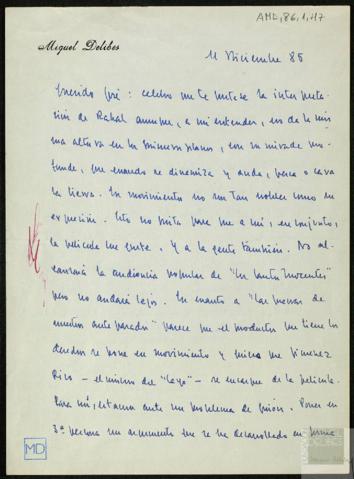 AMD, 86, 1, 117
Miguel Delibes
11 Diciembre 85
Querido José: celebro que te guste la interpreta-
ción de Rabal aunque, a mi entender, no da la mis-
ma altura en los primeros planos, con su mirada pro-
funda, que cuando se dinamiza y anda, pesca o cava
la tierra. Sus movimientos no son tan nobles como su
expresión. Esto no quita para que a mí, en conjunto,
la película me guste. Y a la gente también. No al-
canzará la audiencia popular de "Los santos inocentes"
pero no andará lejos. En cuanto a "Las guerras de
nuestros antepasados" parece que el productor que tiene los
derechos se pone en movimiento y quiere que Jiménez
Rico - el mismo del "Cayo" - se encargue de la película.
Para mí, estamos ante un problema de guión. Poner en
3ª persona un argumento que se ha desarrollado en
MD